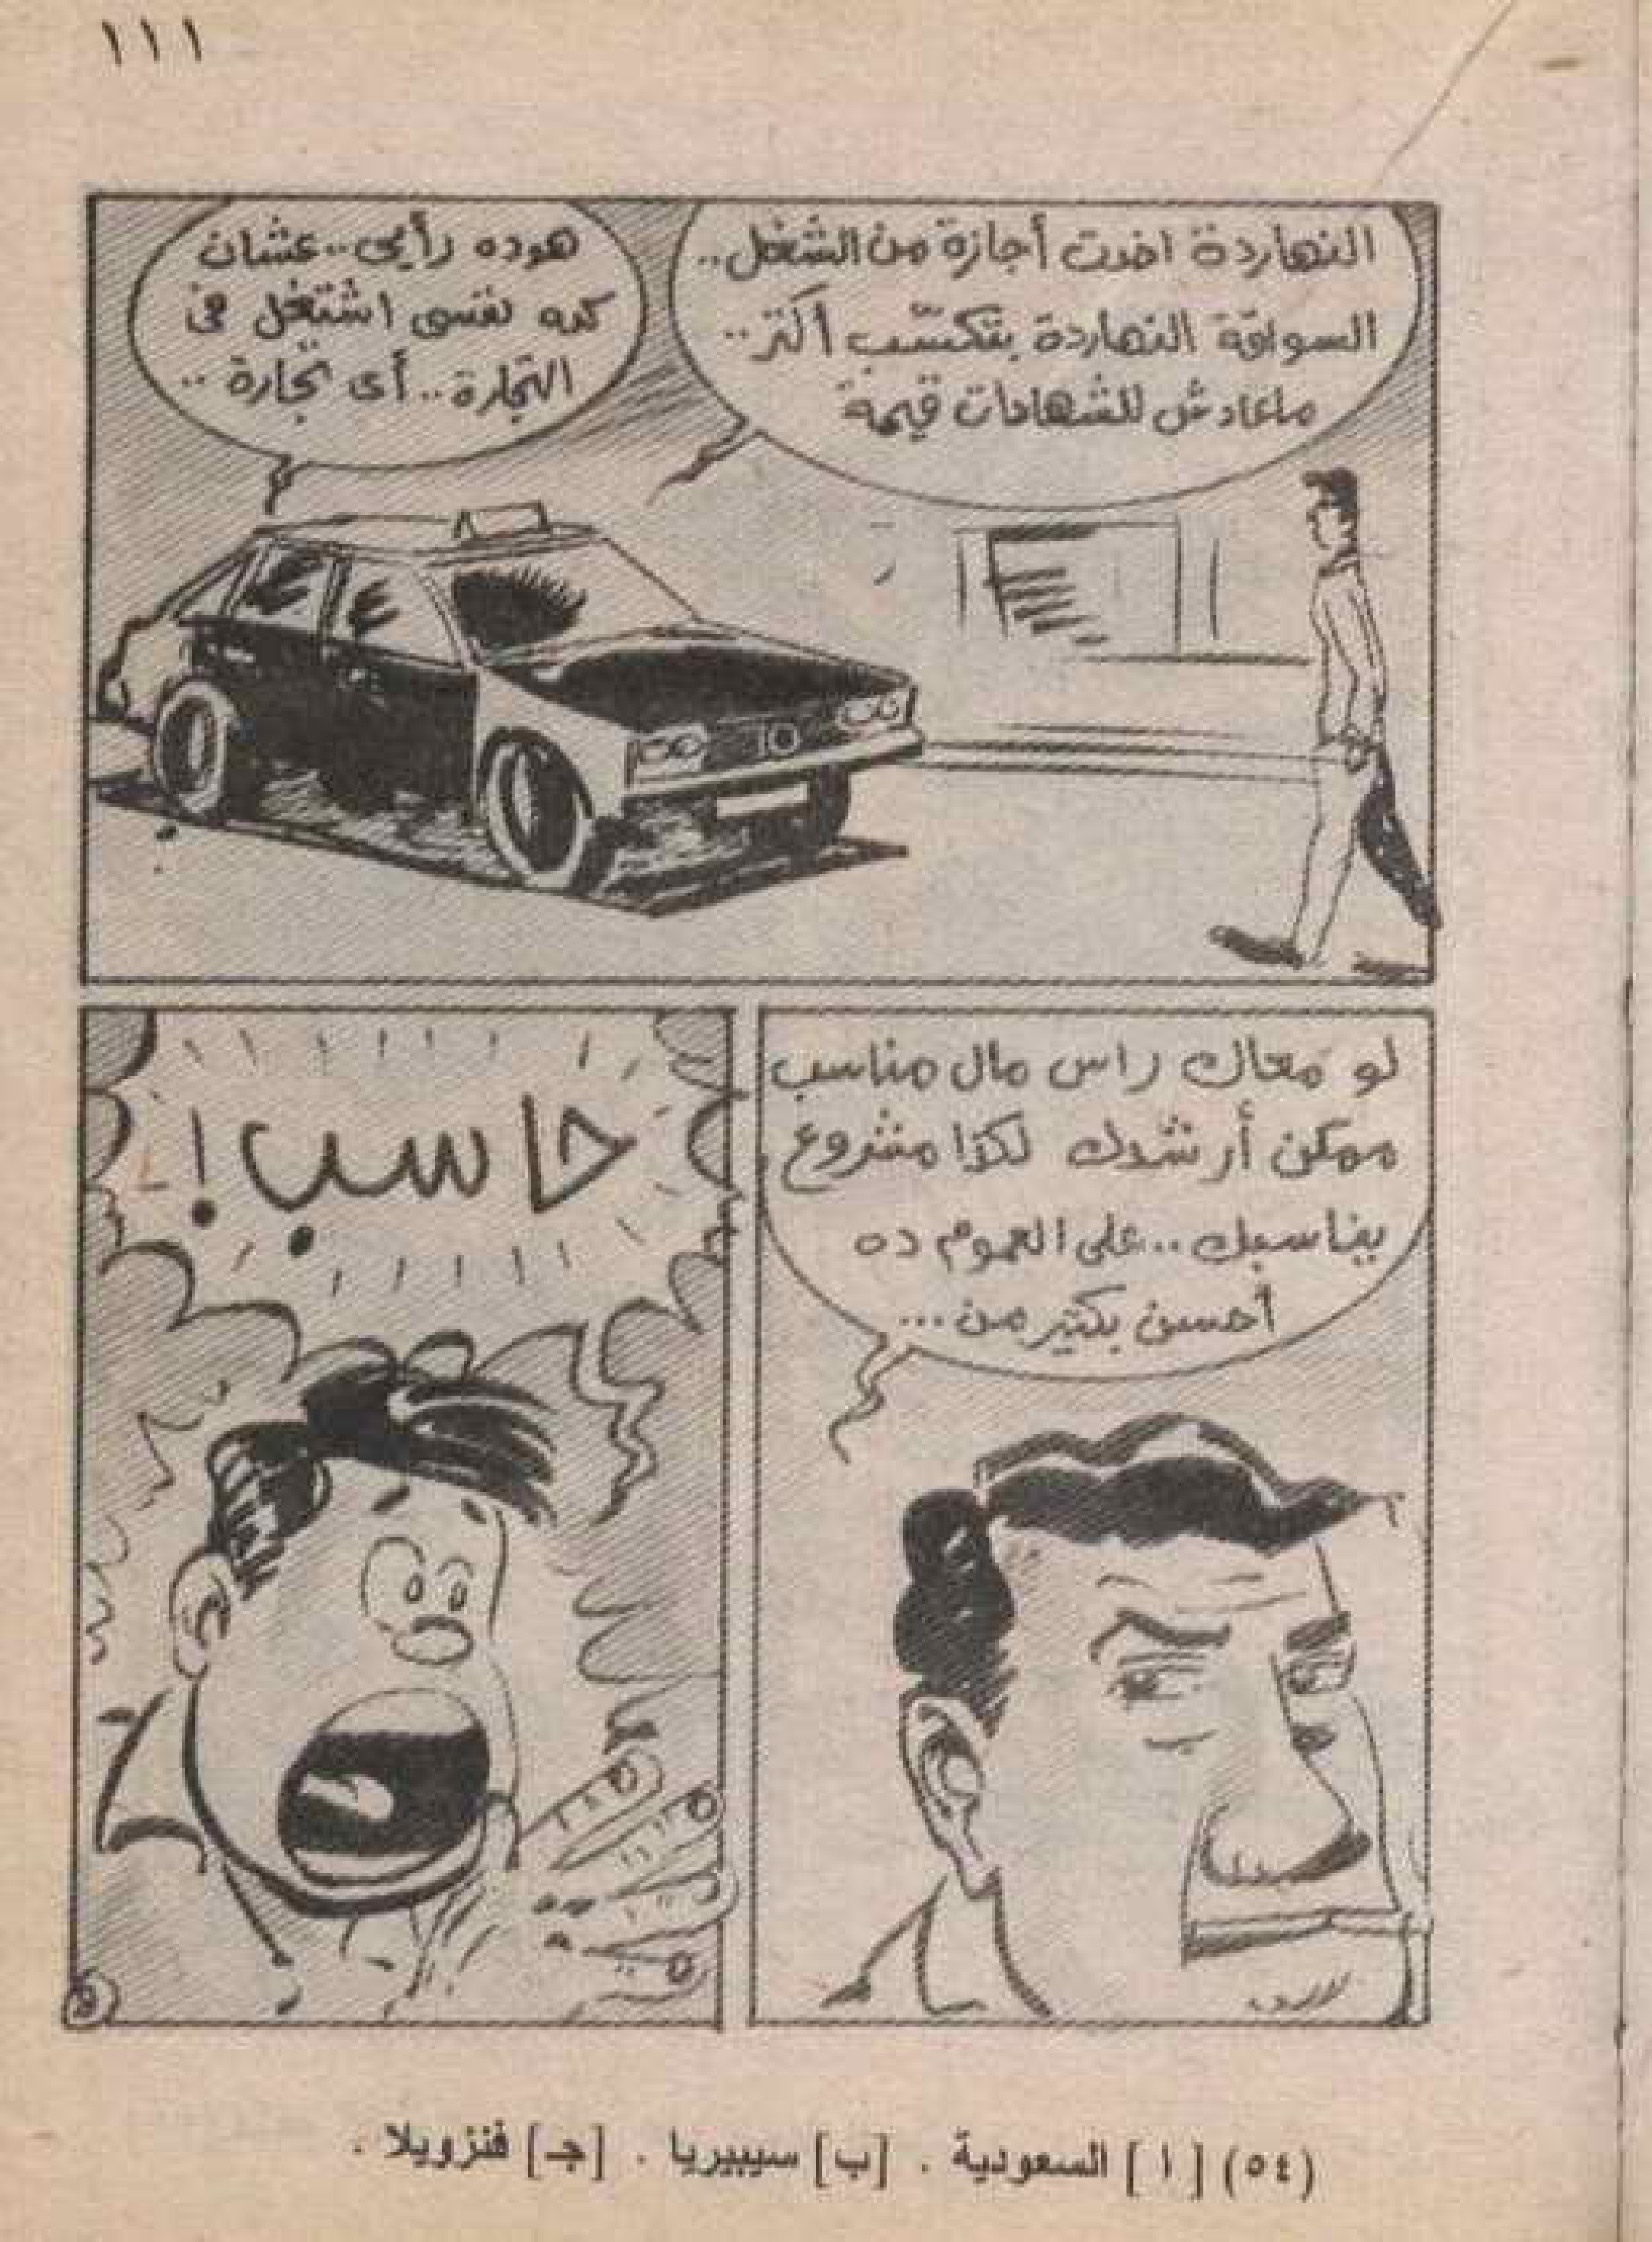 ١١١
النهاردة اخدت أجازة من الشغل..
السواقة النهاردة بتكسب أكتر..
ماعادش للشهادات قيمة
هو ده رأيى.. عشان
كده نفسى اشتغل فى
التجارة.. أى تجارة..
لو معاك راس مال مناسب
ممكن أرشدك لكذا مشروع
يناسبك.. على العموم ده
أحسن بكتير من...
حاسب!
(٥٤) [ ا ] السعودية . [ب] سيبيريا . [جـ] فنزويلا .